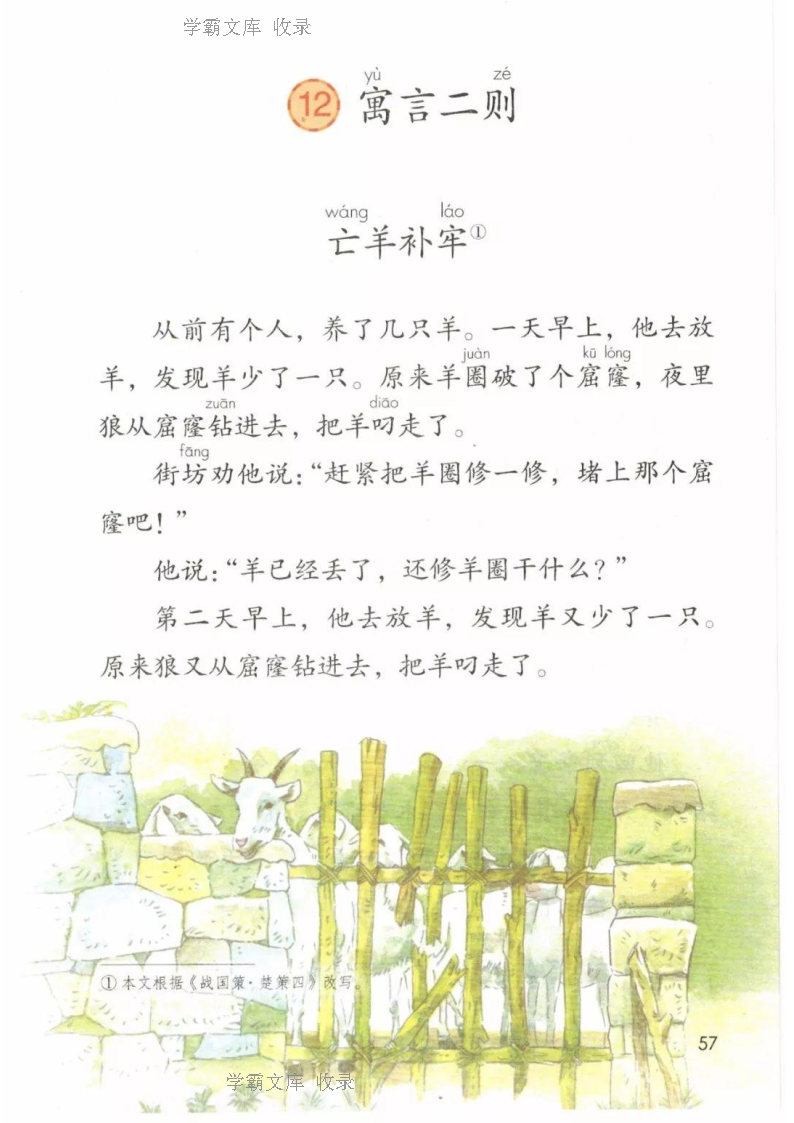 学霸文库 收录
yù zé
12 寓言二则
wáng láo
亡羊补牢①
从前有个人，养了几只羊。一天早上，他去放
juàn kū lóng
羊，发现羊少了一只。原来羊圈破了个窟窿，夜里
zuān diāo
狼从窟窿钻进去，把羊叼走了。
fāng
街坊劝他说：“赶紧把羊圈修一修，堵上那个窟
窿吧！”
他说：“羊已经丢了，还修羊圈干什么？”
第二天早上，他去放羊，发现羊又少了一只。
原来狼又从窟窿钻进去，把羊叼走了。
①本文根据《战国策·楚策四》改写。
57
学霸文库 收录